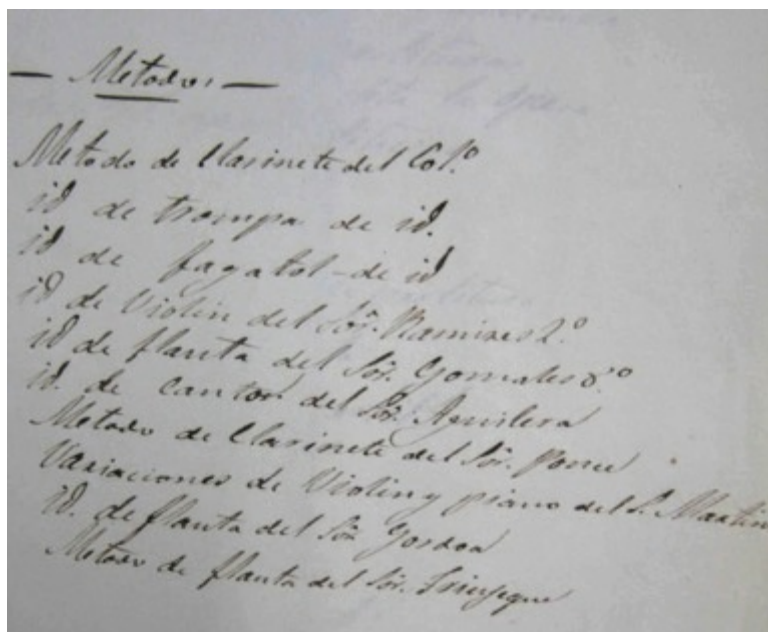 — Metodos —
Metodo de Clarinete del Col.º
id de trompa de id.
id de fagatol - de id
id de Violin del Sõr. Ramires 2.º
id de flauta del Sõr. Gonzales
id. de cantos del Sõr. Aguilera
Metodo de Clarinete del Sõr. Ponce
Variaciones de Violin y piano del S. Martin
id. de flauta del Sõr Gordoa
Metodo de flauta del Sõr.